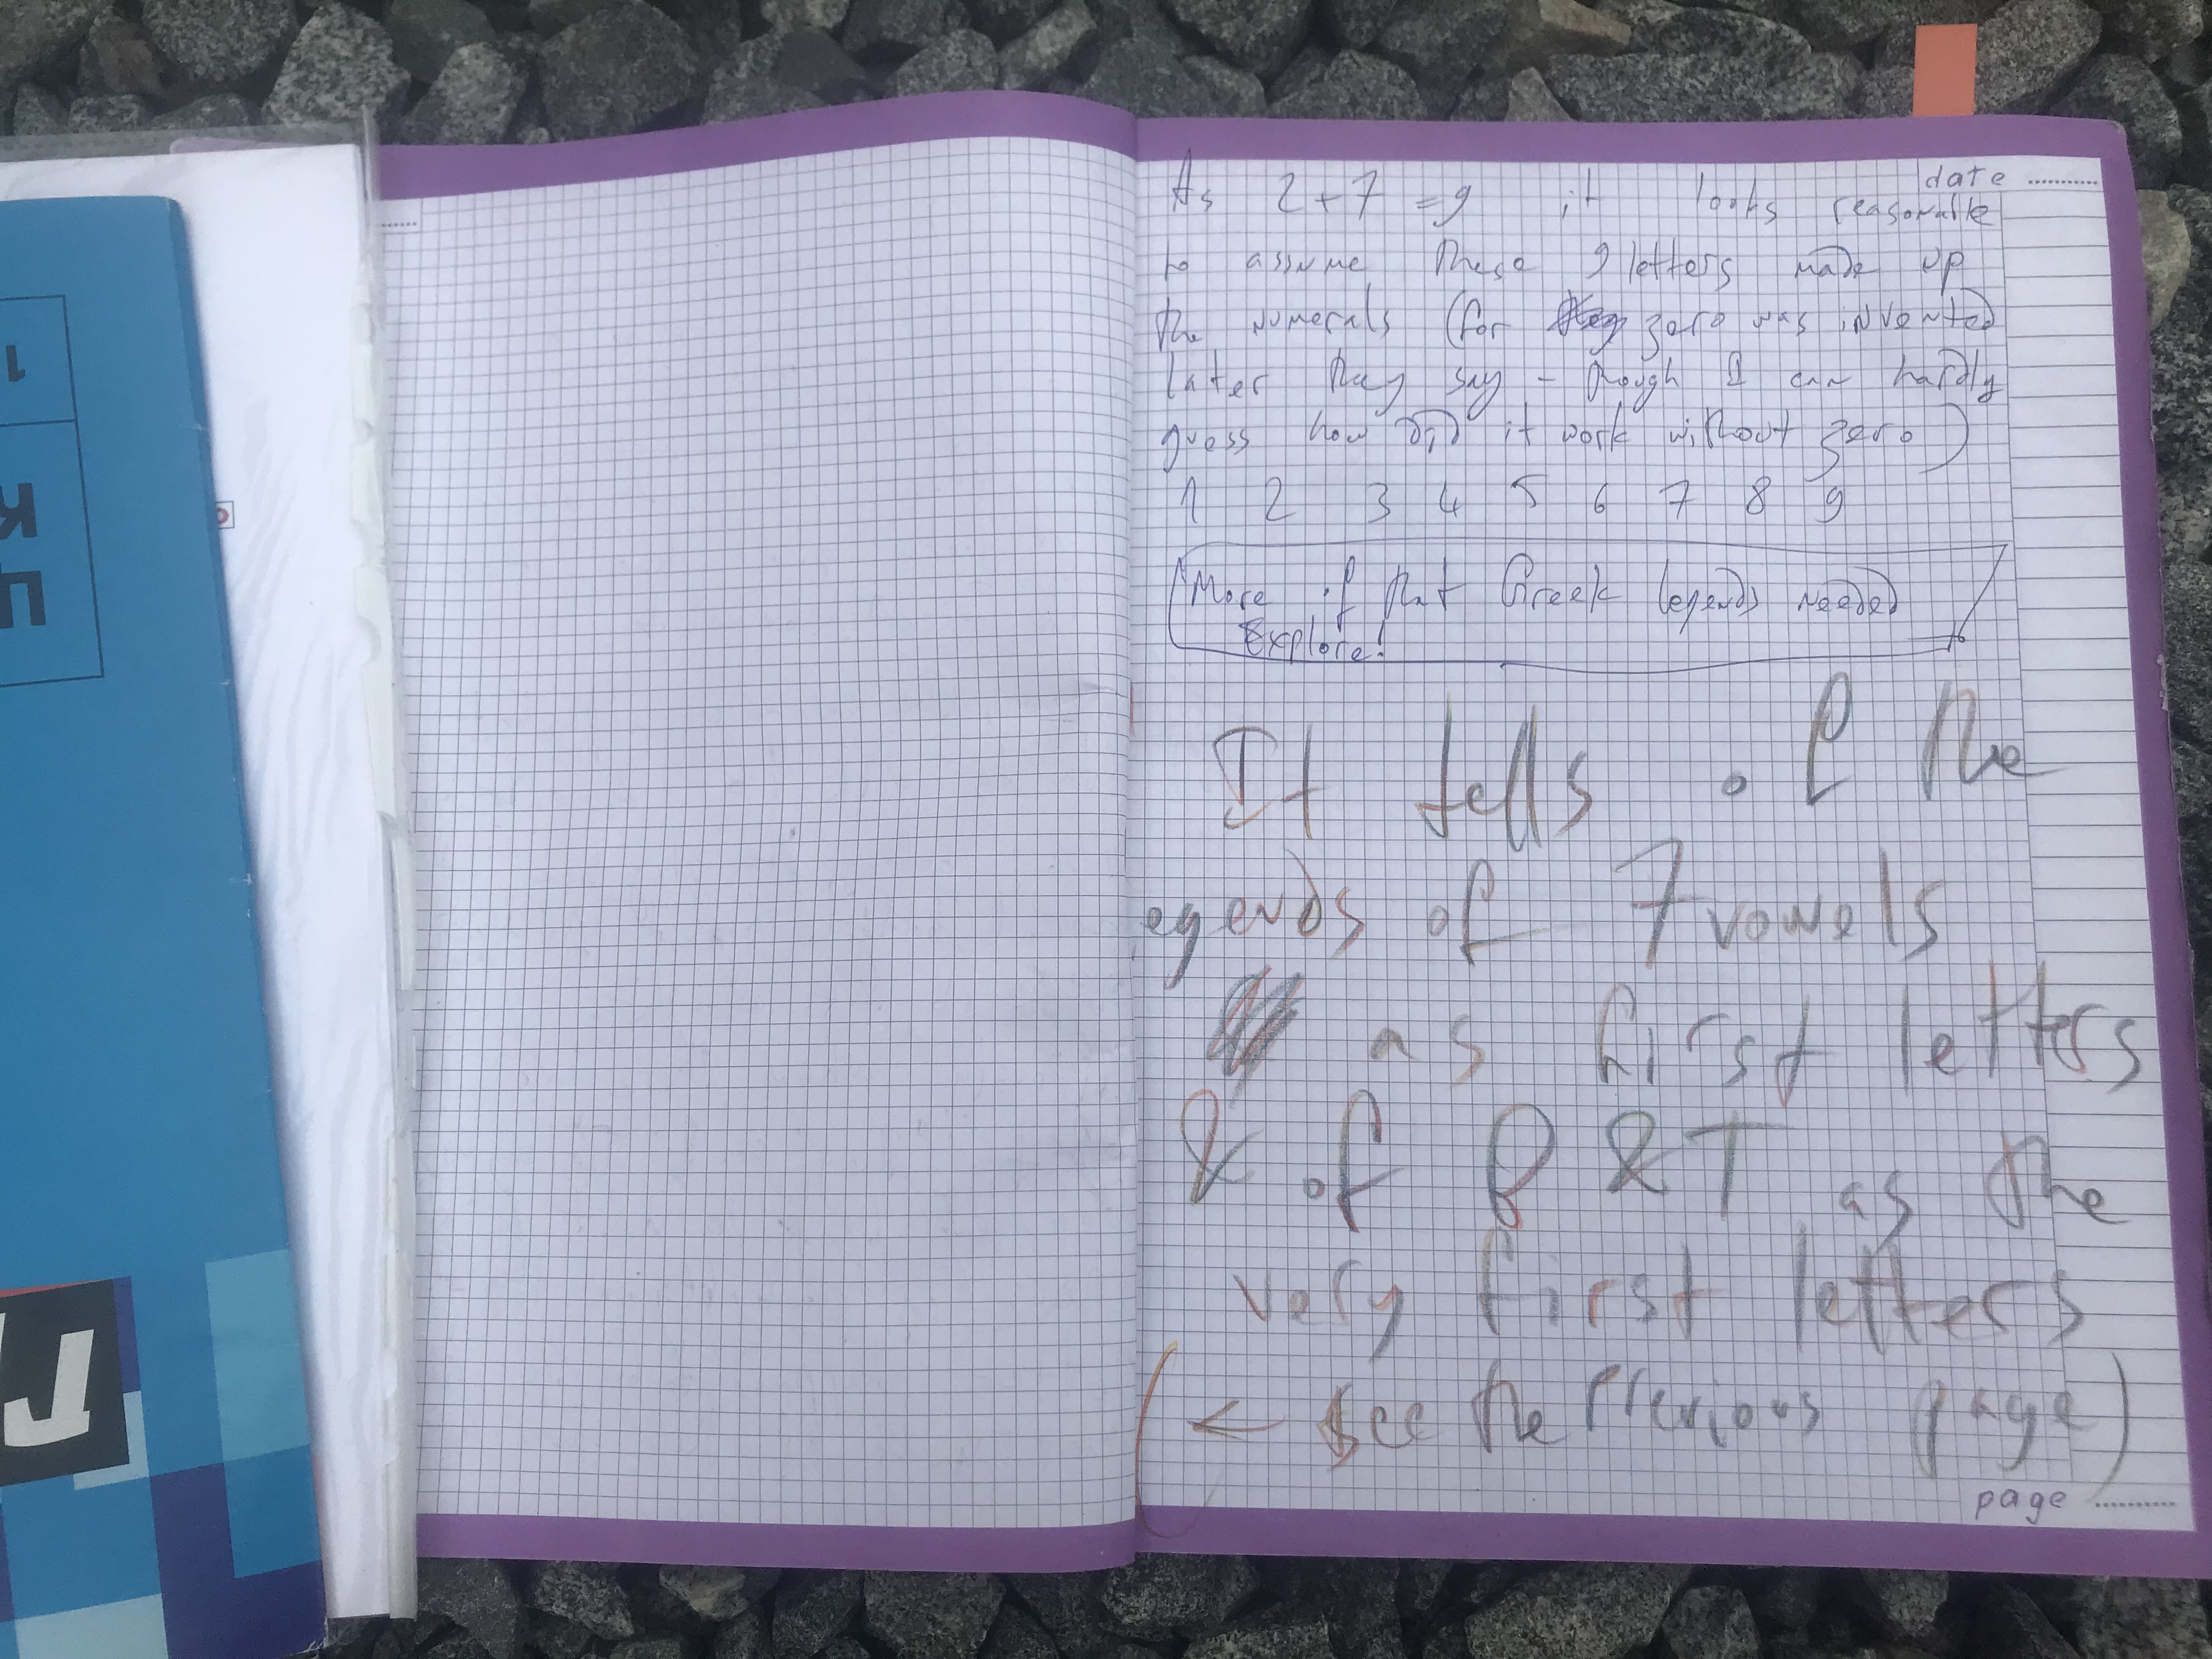 date
As 2+7 = 9 it looks reasonable
to assume these 9 letters made up
the numerals (for zero was invented
later they say - though I can hardly
guess how did it work without zero)
1 2 3 4 5 6 7 8 9
(More if that Greek legends needed
Explore!
It tells of the
legends of 7 vowels
as first letters
& of B & T as the
very first letters
← see the previous page)
page
Ц
К
1